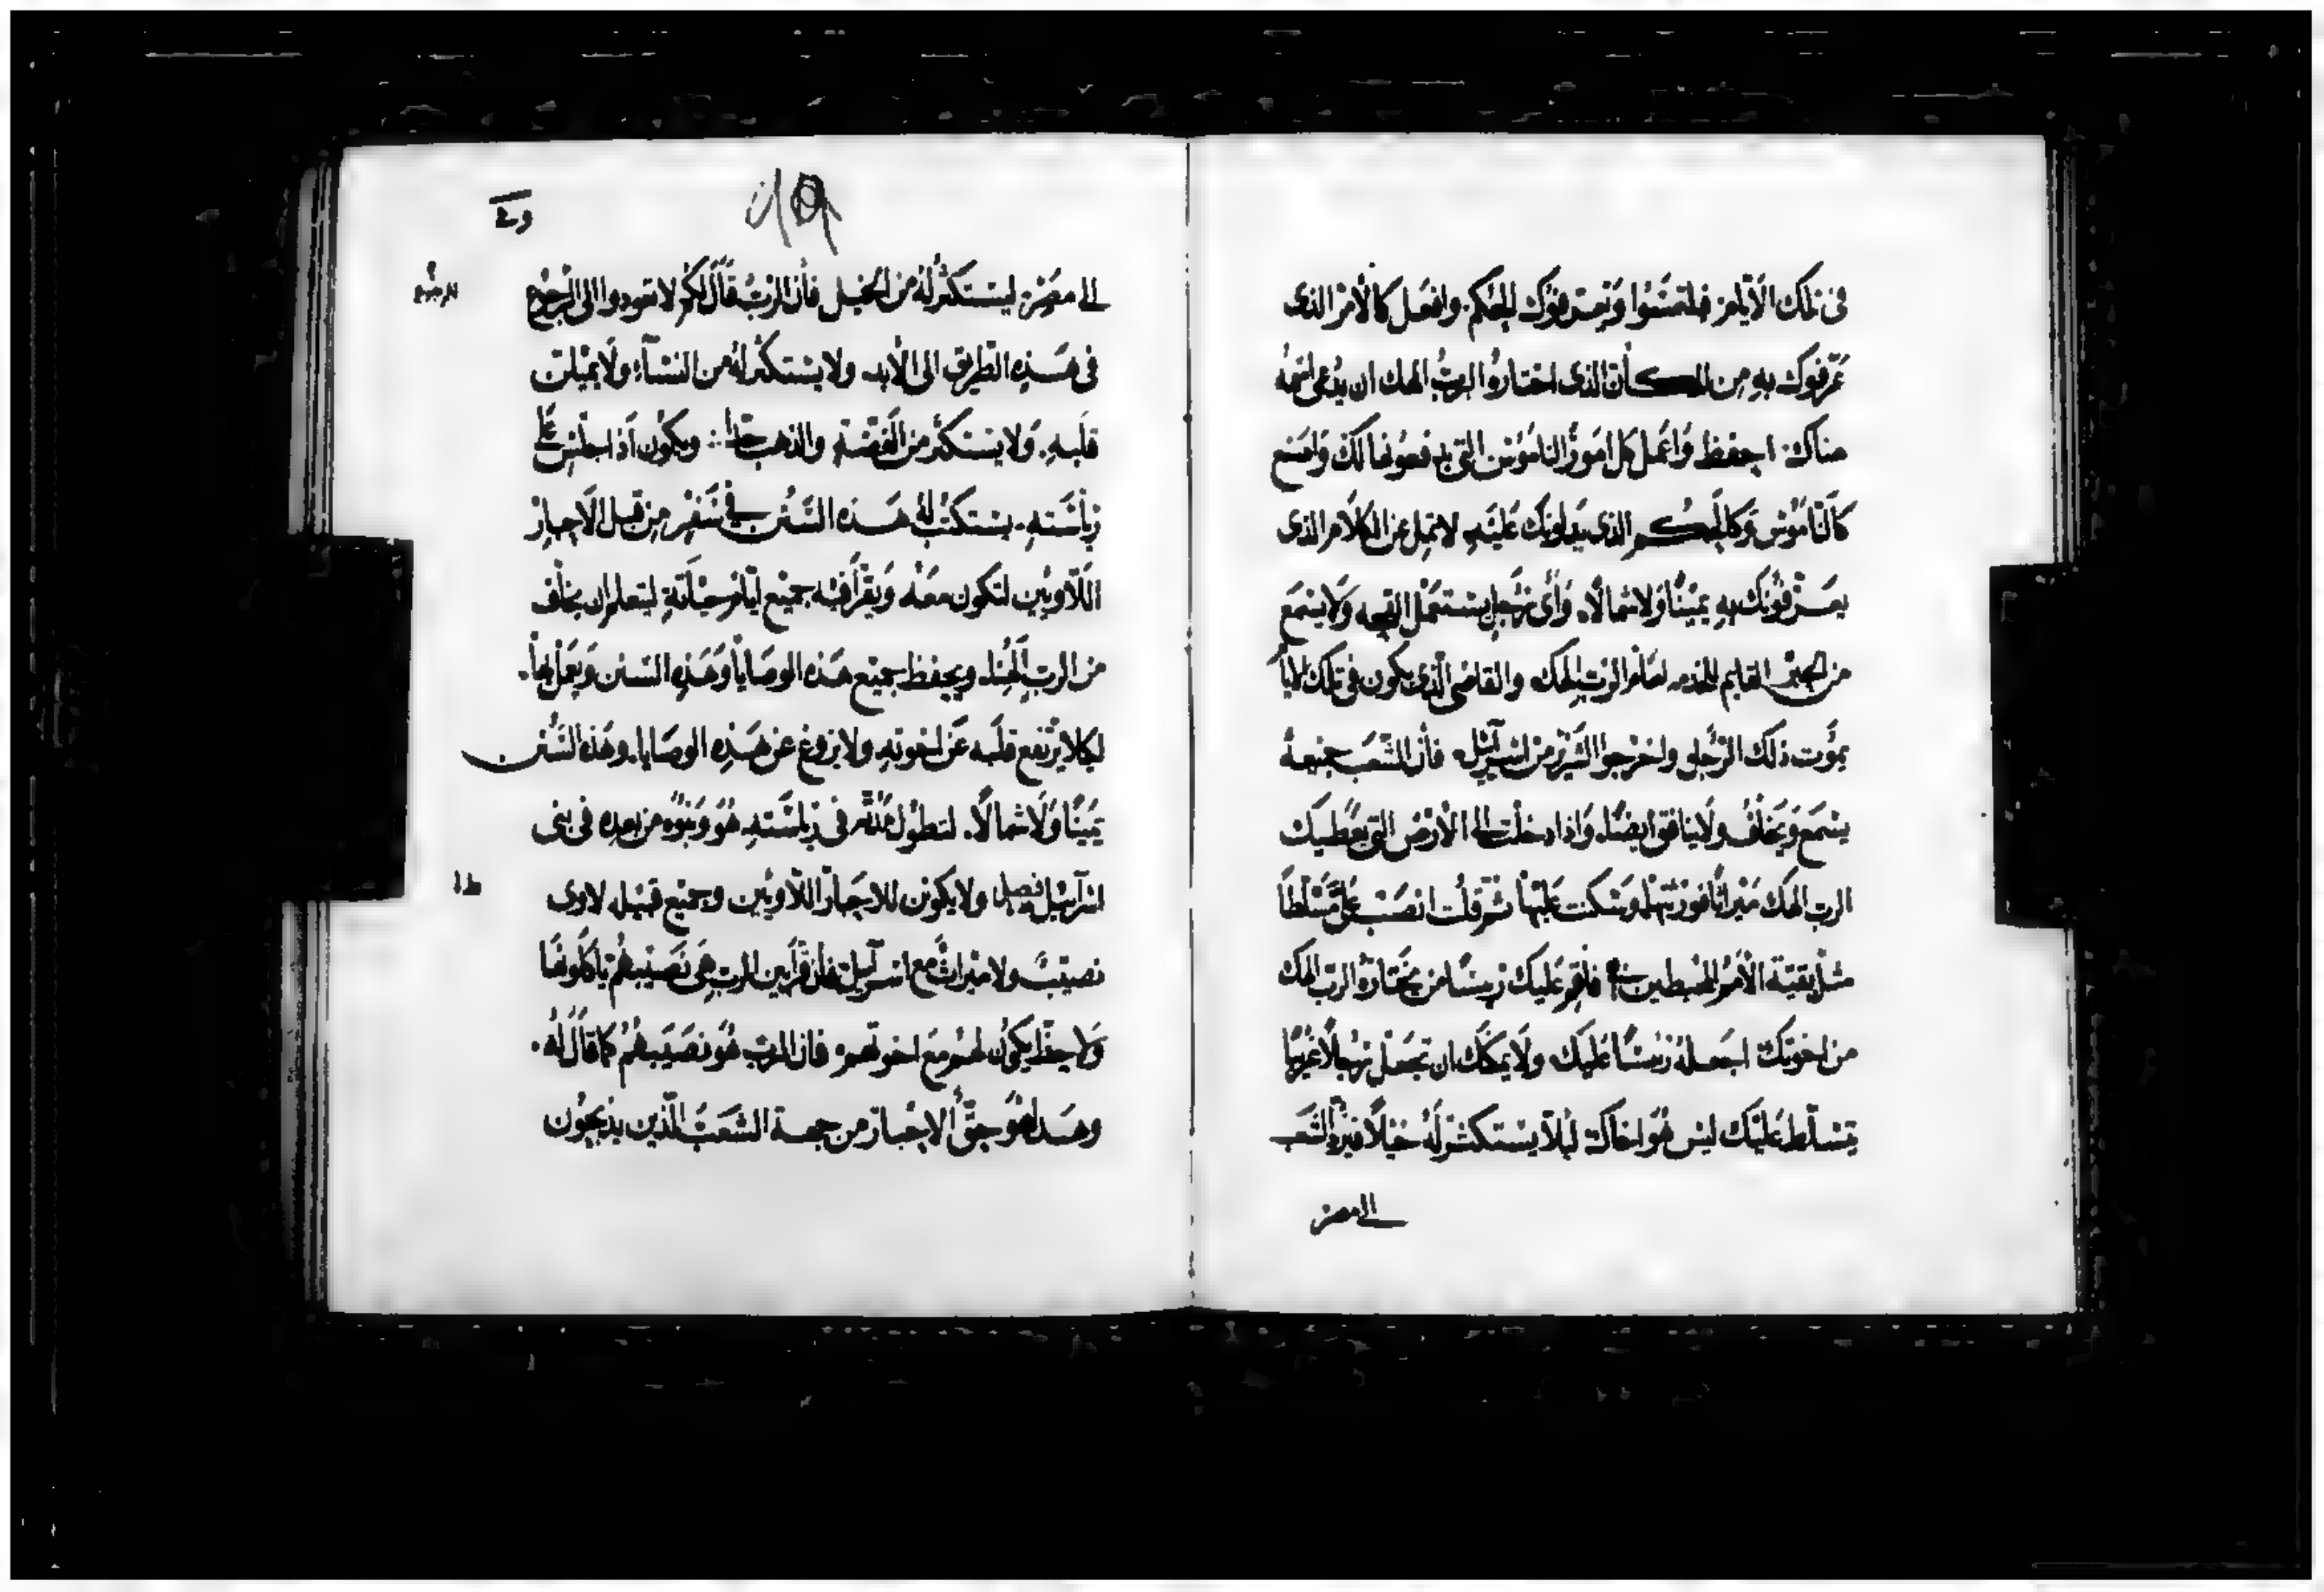 فى تلك الأيام فليلتمسوا ويعرفوك الحكم. وافعل كالأمر الذى
عرفوك به من المكان الذى اختاره الرب الهك ان يدعى اسمه
هناك. احفظ واعمل كل امور الناموس التى يدفعونها لك واصنع
كالناموس وكالحكم الذى يدلونك عليه لا تمل عن الكلام الذى
يعرفونك به يمينًا ولا شمالًا. وأى رجل يستعمل القحه ولا يسمع
من الحبر القايم للخدمه امام الرب الهك والقاضى الذى يكون فى تلك الايام
يموت ذلك الرجل واخرجوا الشرير من اسرآييل. فأن الشعب جميعه
يسمع ويخاف ولا ينافقوا ايضًا. واذا دخلت الى الأرض التى يعطيك
الرب الهك ميراثًا فورثتها وسكنت عليها ثم قلت انصب علىّ مسلطًا
مثل بقية الأمم المحيطين بى فأقم عليك رئيسًا من يختاره الرب الهك
من اخوتك اجعله رئيسًا عليك ولا يمكنك ان تجعل رجلًا غريبًا
يتسلط عليك ليس هو اخاك ليلا يستكثر له خيلًا فيرد الشعب
الى مصر
الى مصر ليستكثر له من الخيل فأن الرب قال لكم لا تعودوا الى الرجوع
الرجوع
فى هذه الطريق الى الأبد ولا يستكثر له من النسآء ولا يميلن
قلبه. ولا يستكثر من الفضة والذهب جدا ويكون اذا جلس على
رياسته. يستكتب له هذه السنن فى سفر من قبل الأحبار
اللاويين لتكون معه ويقرأ فيه جميع ايام حياته ليتعلم ان يخاف
من الرب الهنا. ويحفظ جميع هذه الوصايا وهذه السنن ويعمل بها.
ليكلا يرتفع قلبه عن اخوته ولا يزوغ عن هذه الوصايا. وهذه السنن
يمينًا ولا شمالًا. لتطول مدته فى رياسته هو وبنوه من بعده فى بنى
اسرآييل فصل ولا يكون للاحبار اللاويين وجميع قبيله لاوى
نصيبًا ولا ميراث مع اسرآييل فان قرابين الرب هى نصيبهم ياكلونها
ولا حظ يكون لهم مع اخوتهم فان الرب هو نصيبهم كما قال له.
وهذا هو حق الاحبار من جهة الشعب الذين يذبحون